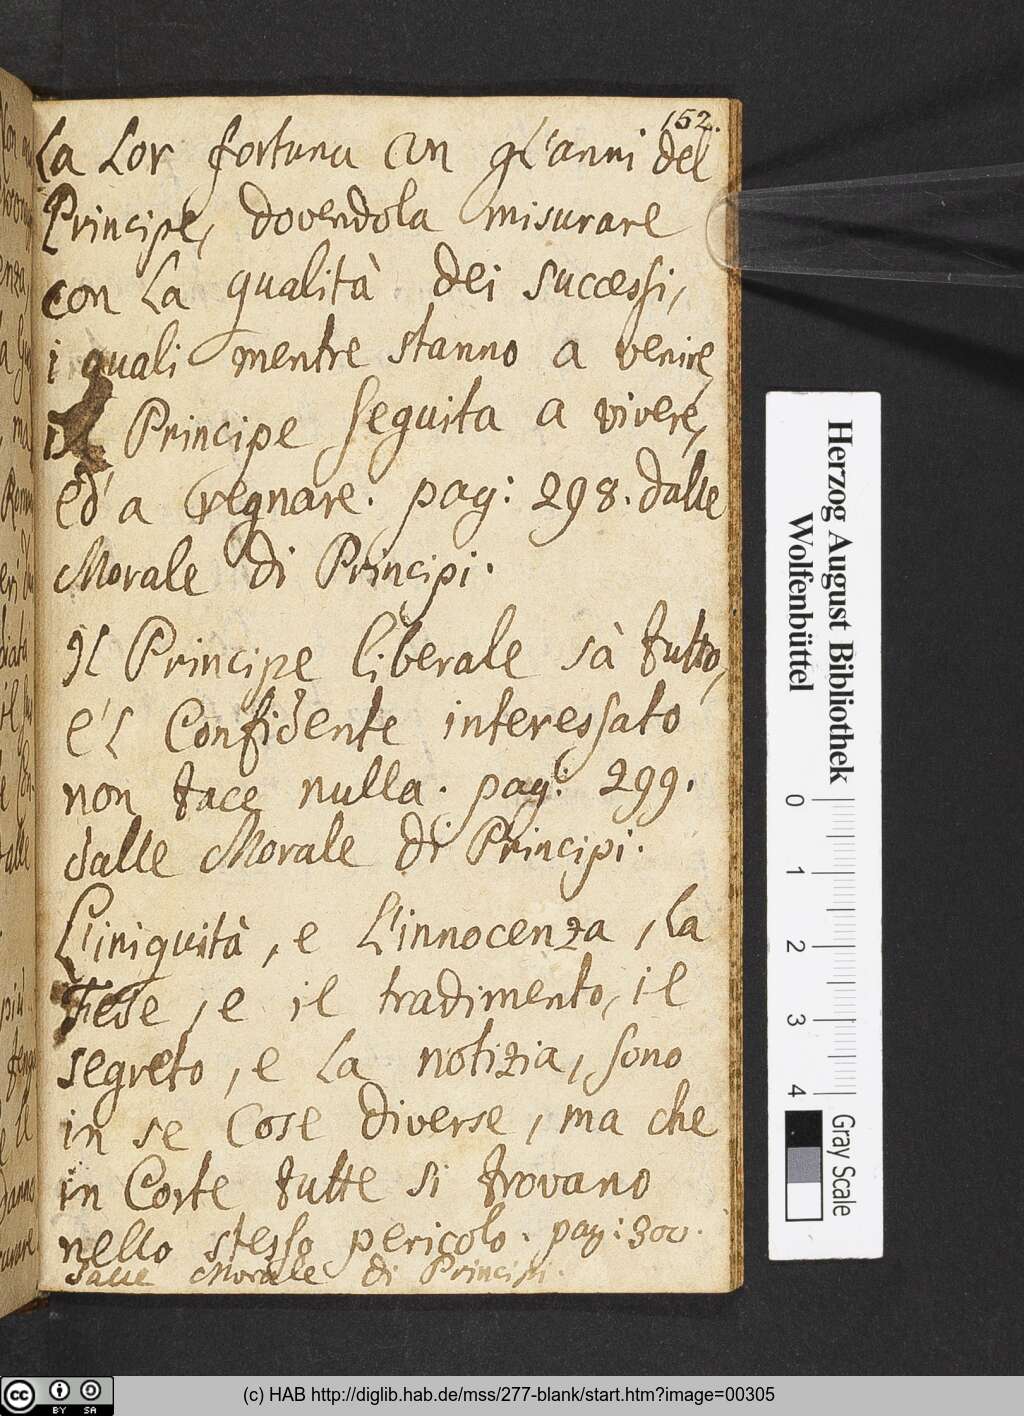 152.
La Lor fortuna con gl'anni del
Principe, dovendola misurare
con La qualità dei successi,
i quali mentre stanno a venire,
il Principe seguita a vivere,
ed'a regnare. pag: 298. dalle
Morale di Principi.
Il Principe liberale sà tutto,
e'l Confidente interessato
non tace nulla. pag: 299.
dalle Morale di Principi.
L'iniquità, e L'innocenza, La
Fede, e il tradimento, il
segreto, e La notizia, sono
in se Cose diverse, ma che
in Corte tutte si trovano
nello stesso pericolo. pag: 300.
dalle Morale di Principi.
Herzog August Bibliothek
Wolfenbüttel
0 1 2 3 4
Gray Scale
cc BY SA
(c) HAB http://diglib.hab.de/mss/277-blank/start.htm?image=00305